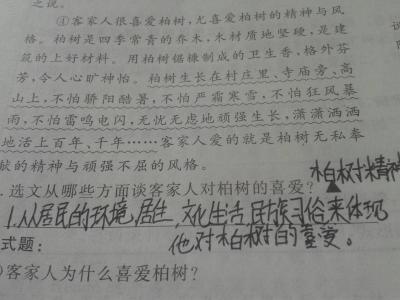 之说。
④客家人很喜爱柏树,尤喜爱柏树的精神与风
格。柏树是四季常青的乔木,木材质地坚硬,是建
筑的上好材料。用柏树锯糠制成的卫生香,格外芬
芳,令人心旷神怡。柏树生长在村庄里、寺庙旁、高
山上,不怕骄阳酷暑,不怕严霜寒雪,不怕狂风暴
雨,不怕雷鸣电闪,无忧无虑地顽强生长,潇潇洒洒
地活上百年、千年……客家人爱的就是柏树无私奉
献的精神与顽强不屈的风格。
柏树精神
.选文从哪些方面谈客家人对柏树的喜爱?
1.从居民的环境,居住,文化生活,民族习俗来体现
他对柏树的喜爱。
式题:
客家人为什么喜爱柏树?